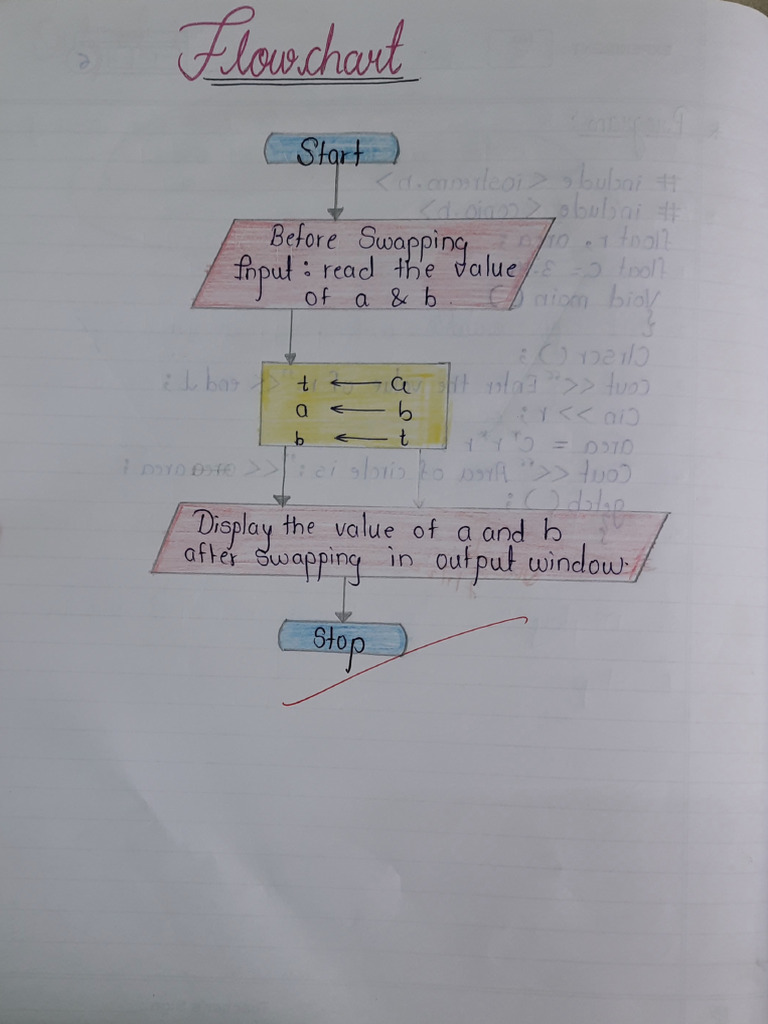 Flowchart
Start
Before Swapping
Input : read the value
of a & b.
t ← a
a ← b
b ← t
Display the value of a and b
after swapping in output window.
Stop